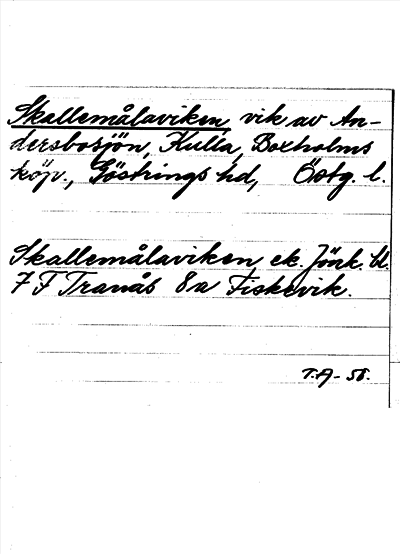 Skallemålaviken, vik av An-
dersbosjön, Kulla, Boxholms
köp., Göstrings hd, Östg. l.
Skallemålaviken ek. Jönk. bl.
7 F Tranås 8 a Fiskevik.
T.A-58.